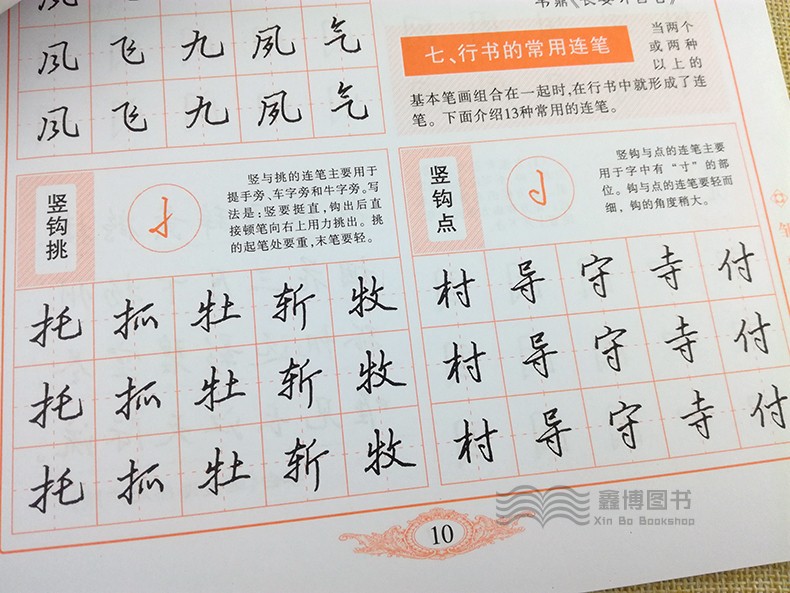 韦鼎《长安听百舌》
风 飞 九 夙 气
风 飞 九 夙 气
七、行书的常用连笔
当两个
或两种
以上的
基本笔画组合在一起时,在行书中就形成了连
笔。下面介绍13种常用的连笔。
竖钩挑
竖与挑的连笔主要用于
提手旁、车字旁和牛字旁。写
法是:竖要挺直,钩出后直
接顿笔向右上用力挑出。挑
的起笔处要重,末笔要轻。
托 抓 牡 斩 牧
托 抓 牡 斩 牧
托 抓 牡 斩 牧
竖钩点
竖钩与点的连笔主要
用于字中有“寸”的部
位。钩与点的连笔要轻而
细,钩的角度稍大。
村 导 守 寺 付
村 导 守 寺 付
村 导 守 寺 付
10
鑫博图书
Xin Bo Bookshop